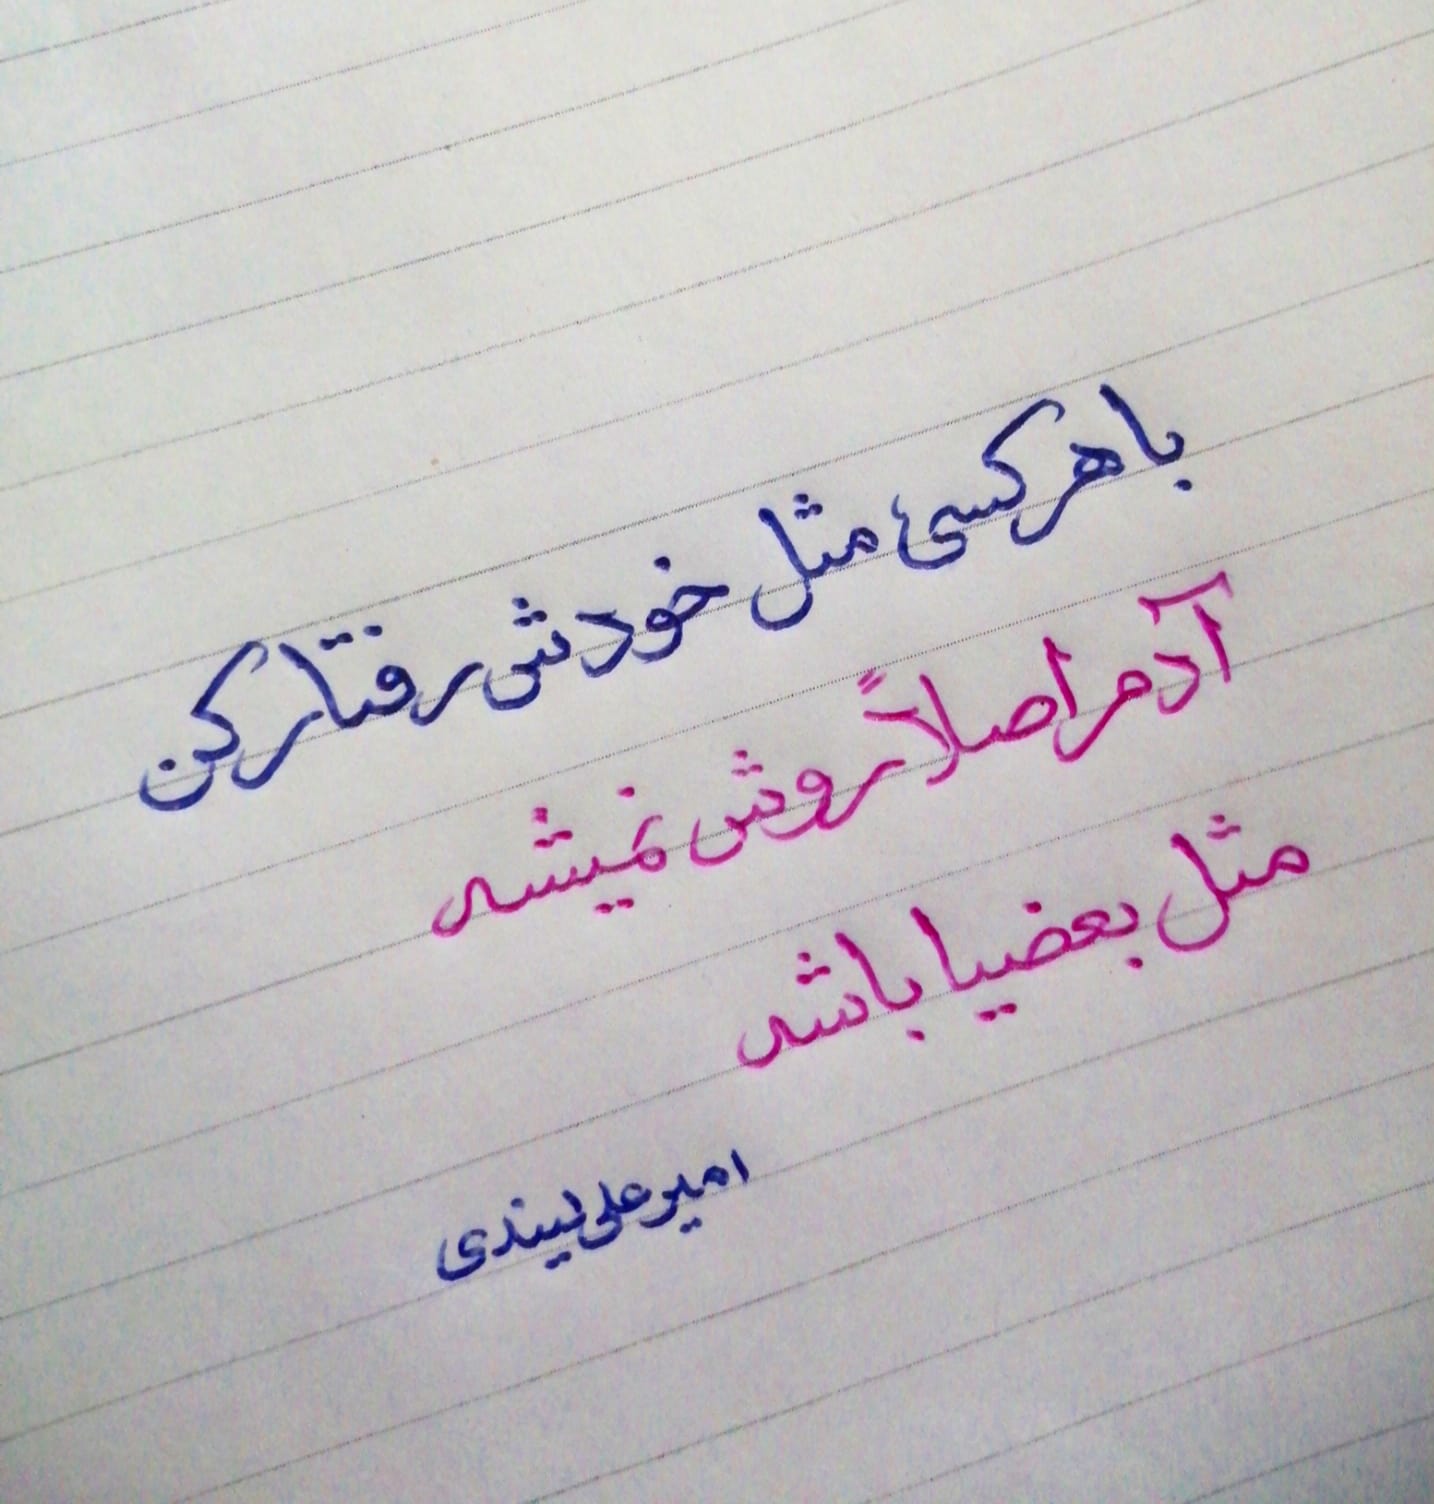 با هر کسی مثل خودش رفتار کن
آدم اصلاً روش نمیشه
مثل بعضیا باشه
امیرعلی